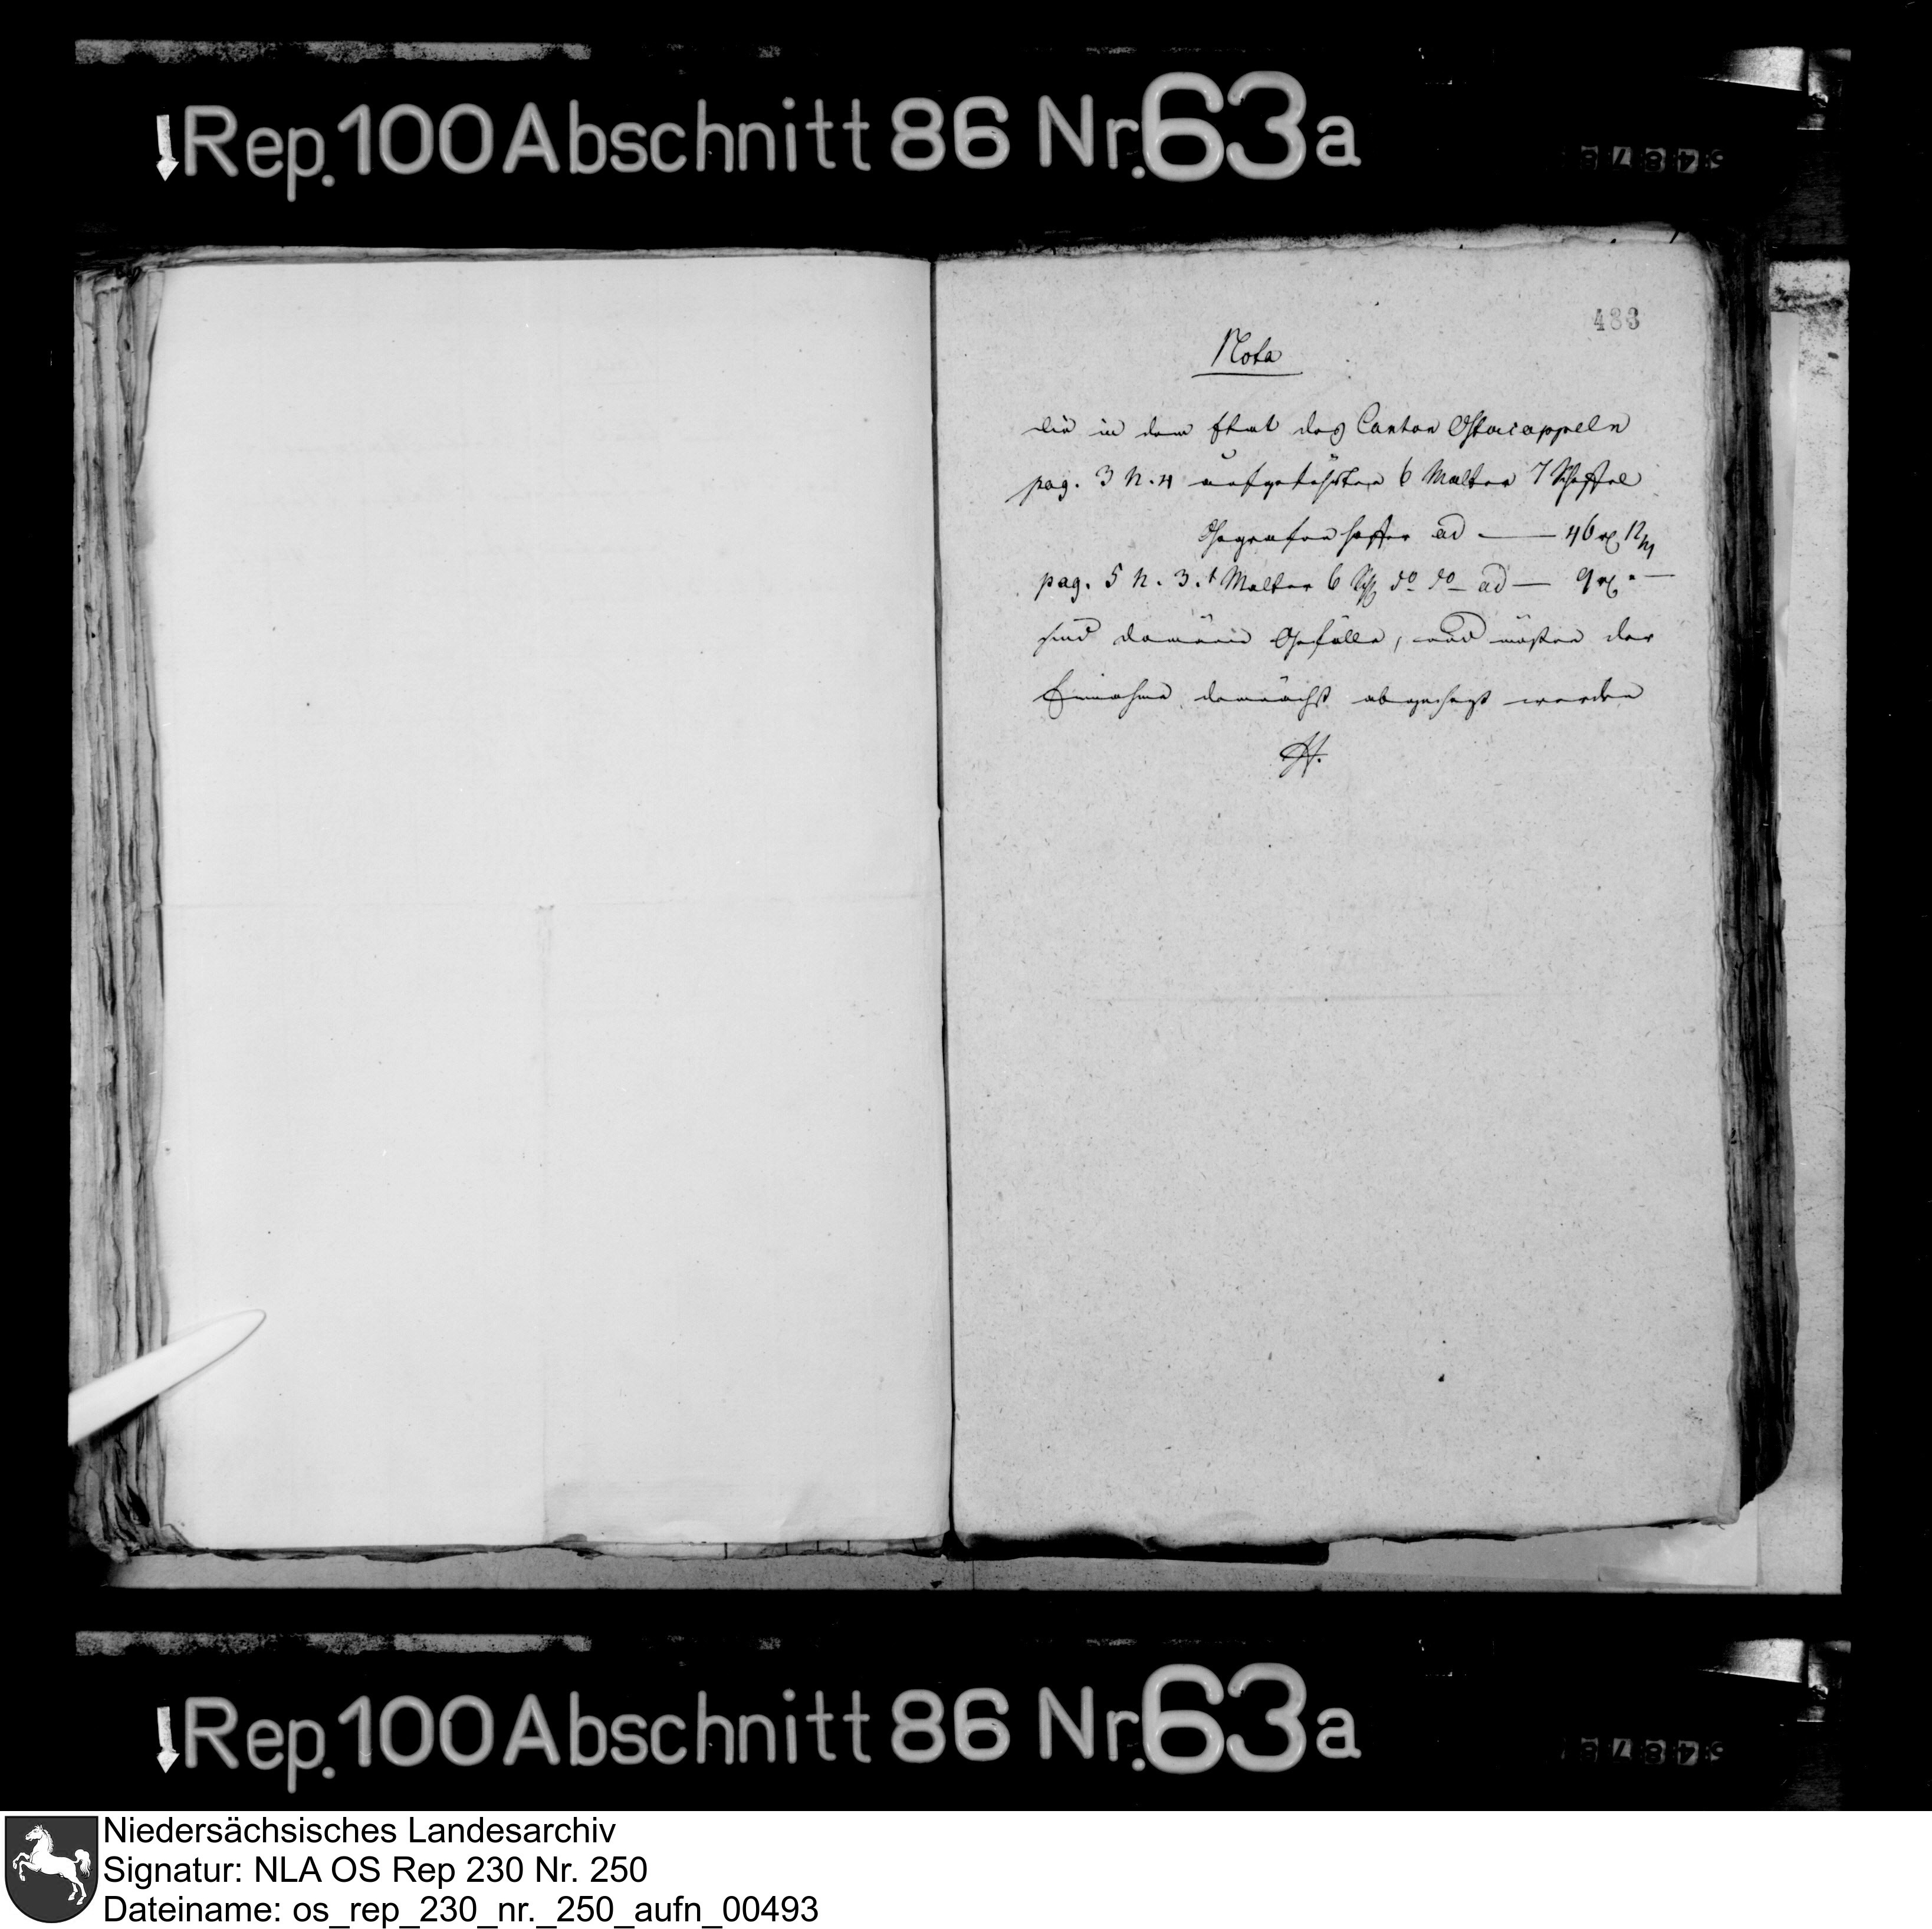 Rep. 100 Abschnitt 86 Nr. 63a
483
Nota
die in dem Etat des Canton Ostercappeln
pag. 3 N. 4 aufgeführten 6 Malter 7 Scheffel
Gografen Haffer ad — 46 rx 12
pag. 5 N. 3. 1 Malter 6 Sch do do ad — 9 rx . —
sind domänen Gefälle, und müßen der
Einnahme demnächst abgesetzt werden
H.
Rep. 100 Abschnitt 86 Nr. 63a
Niedersächsisches Landesarchiv
Signatur: NLA OS Rep 230 Nr. 250
Dateiname: os_rep_230_nr._250_aufn_00493